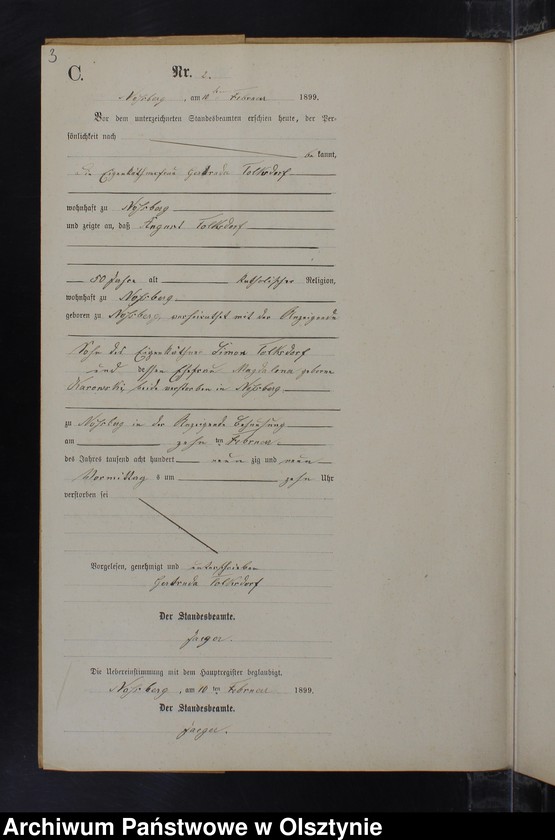 3
C. Nr. 2.
Noßberg, am 10ten Februar 1899.
Vor dem unterzeichneten Standesbeamten erschien heute, der Per-
sönlichkeit nach
be kannt,
die Eigenkäthnerfrau Gertruda Tolksdorf
wohnhaft zu Noßberg
und zeigte an, daß August Tolksdorf
50 Jahre alt katholischer Religion,
wohnhaft zu Noßberg
geboren zu Noßberg, verheirathet mit der Anzeigende
Sohn des Eigenkäthner Simon Tolksdorf
und dessen Ehefrau Magdalena geborne
beide verstorben in Noßberg
zu Noßberg in der Anzeigende Behausung
am zehn ten Februar
des Jahres tausend acht hundert neun zig und neun
Vormittag s um zehn Uhr
verstorben sei
Vorgelesen, genehmigt und unterschrieben
Gertruda Tolksdorf
Der Standesbeamte.
Jaeger.
Die Uebereinstimmung mit dem Hauptregister beglaubigt.
Noßberg, am 10ten Februar 1899.
Der Standesbeamte.
Jaeger.
Archiwum Państwowe w Olsztynie